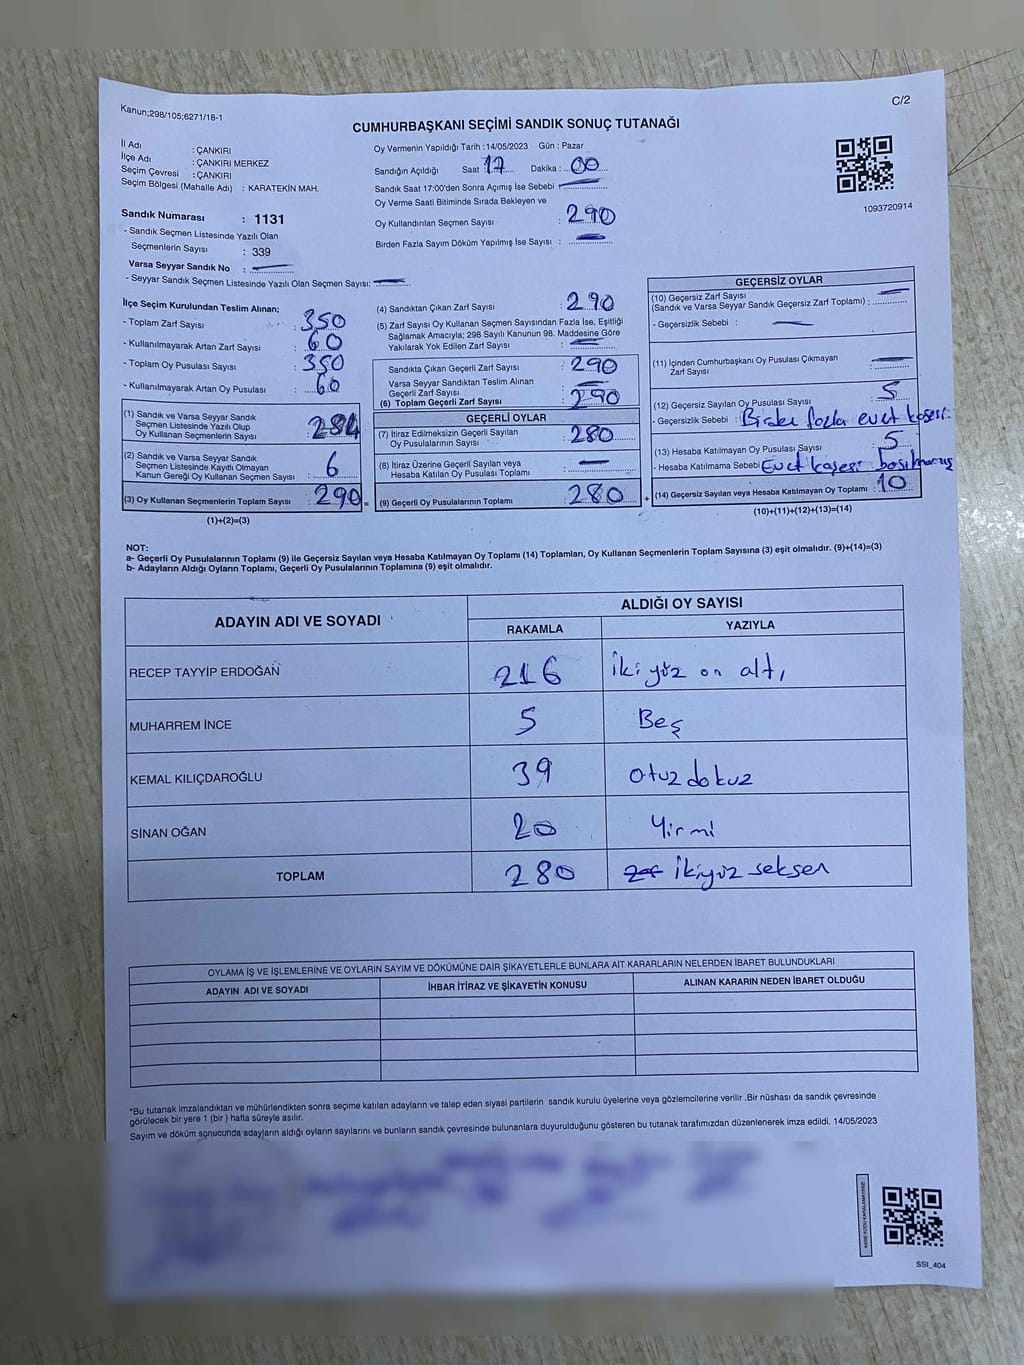 Kanun;298/105;6271/18-1
C/2
CUMHURBAŞKANI SEÇİMİ SANDIK SONUÇ TUTANAĞI
İl Adı : ÇANKIRI
İlçe Adı : ÇANKIRI MERKEZ
Seçim Çevresi : ÇANKIRI
Seçim Bölgesi (Mahalle Adı) : KARATEKİN MAH.
Oy Vermenin Yapıldığı Tarih :14/05/2023 Gün : Pazar
Sandığın Açıldığı Saat : 17 Dakika : 00
Sandık Saat 17:00'den Sonra Açımış İse Sebebi
Oy Verme Saati Bitiminde Sırada Bekleyen ve
Oy Kullandırılan Seçmen Sayısı : 290
Birden Fazla Sayım Döküm Yapılmış İse Sayısı :
1093720914
Sandık Numarası : 1131
- Sandık Seçmen Listesinde Yazılı Olan
Seçmenlerin Sayısı : 339
Varsa Seyyar Sandık No :
- Seyyar Sandık Seçmen Listesinde Yazılı Olan Seçmen Sayısı:
İlçe Seçim Kurulundan Teslim Alınan;
- Toplam Zarf Sayısı : 350
- Kullanılmayarak Artan Zarf Sayısı : 60
- Toplam Oy Pusulası Sayısı : 350
- Kullanılmayarak Artan Oy Pusulası : 60
(1) Sandık ve Varsa Seyyar Sandık
Seçmen Listesinde Yazılı Olup
Oy Kullanan Seçmenlerin Sayısı : 284
(2) Sandık ve Varsa Seyyar Sandık
Seçmen Listesinde Kayıtlı Olmayan
Kanun Gereği Oy Kullanan Seçmen Sayısı : 6
(3) Oy Kullanan Seçmenlerin Toplam Sayısı : 290 =
(1)+(2)=(3)
(4) Sandıktan Çıkan Zarf Sayısı : 290
(5) Zarf Sayısı Oy Kullanan Seçmen Sayısından Fazla İse, Eşitliği
Sağlamak Amacıyla; 298 Sayılı Kanunun 98. Maddesine Göre
Yakılarak Yok Edilen Zarf Sayısı :
Sandıkta Çıkan Geçerli Zarf Sayısı : 290
Varsa Seyyar Sandıktan Teslim Alınan
Geçerli Zarf Sayısı :
(6) Toplam Geçerli Zarf Sayısı : 290
GEÇERLİ OYLAR
(7) İtiraz Edilmeksizin Geçerli Sayılan
Oy Pusulalarının Sayısı : 280
(8) İtiraz Üzerine Geçerli Sayılan veya
Hesaba Katılan Oy Pusulası Toplamı :
(9) Geçerli Oy Pusulalarının Toplamı : 280 +
GEÇERSİZ OYLAR
(10) Geçersiz Zarf Sayısı
(Sandık ve Varsa Seyyar Sandık Geçersiz Zarf Toplamı) :
- Geçersizlik Sebebi :
(11) İçinden Cumhurbaşkanı Oy Pusulası Çıkmayan
Zarf Sayısı :
(12) Geçersiz Sayılan Oy Pusulası Sayısı : 5
- Geçersizlik Sebebi : Birden fazla evet kaşesi.
(13) Hesaba Katılmayan Oy Pusulası Sayısı : 5
- Hesaba Katılmama Sebebi Evet kaşesi basılmamış
(14) Geçersiz Sayılan veya Hesaba Katılmayan Oy Toplamı : 10
(10)+(11)+(12)+(13)=(14)
NOT:
a- Geçerli Oy Pusulalarının Toplamı (9) ile Geçersiz Sayılan veya Hesaba Katılmayan Oy Toplamı (14) Toplamları, Oy Kullanan Seçmenlerin Toplam Sayısına (3) eşit olmalıdır. (9)+(14)=(3)
b- Adayların Aldığı Oyların Toplamı, Geçerli Oy Pusulalarının Toplamına (9) eşit olmalıdır.
ADAYIN ADI VE SOYADI
ALDIĞI OY SAYISI
RAKAMLA YAZIYLA
RECEP TAYYİP ERDOĞAN 216 iki yüz on altı
MUHARREM İNCE 5 Beş
KEMAL KILIÇDAROĞLU 39 otuz dokuz
SİNAN OĞAN 20 Yirmi
TOPLAM 280 ikiyüz seksen
OYLAMA İŞ VE İŞLEMLERİNE VE OYLARIN SAYIM VE DÖKÜMÜNE DAİR ŞİKAYETLERLE BUNLARA AİT KARARLARIN NELERDEN İBARET BULUNDUKLARI
ADAYIN ADI VE SOYADI İHBAR İTİRAZ VE ŞİKAYETİN KONUSU ALINAN KARARIN NEDEN İBARET OLDUĞU
*Bu tutanak imzalandıktan ve mühürlendikten sonra seçime katılan adayların ve talep eden siyasi partilerin sandık kurulu üyelerine veya gözlemcilerine verilir .Bir nüshası da sandık çevresinde
görülecek bir yere 1 (bir ) hafta süreyle asılır.
Sayım ve döküm sonucunda adayların aldığı oyların sayılarını ve bunların sandık çevresinde bulunanlara duyurulduğunu gösteren bu tutanak tarafımızdan düzenlenerek imza edildi. 14/05/2023
KARE KODU KARALAMAYINIZ!
SSI_404